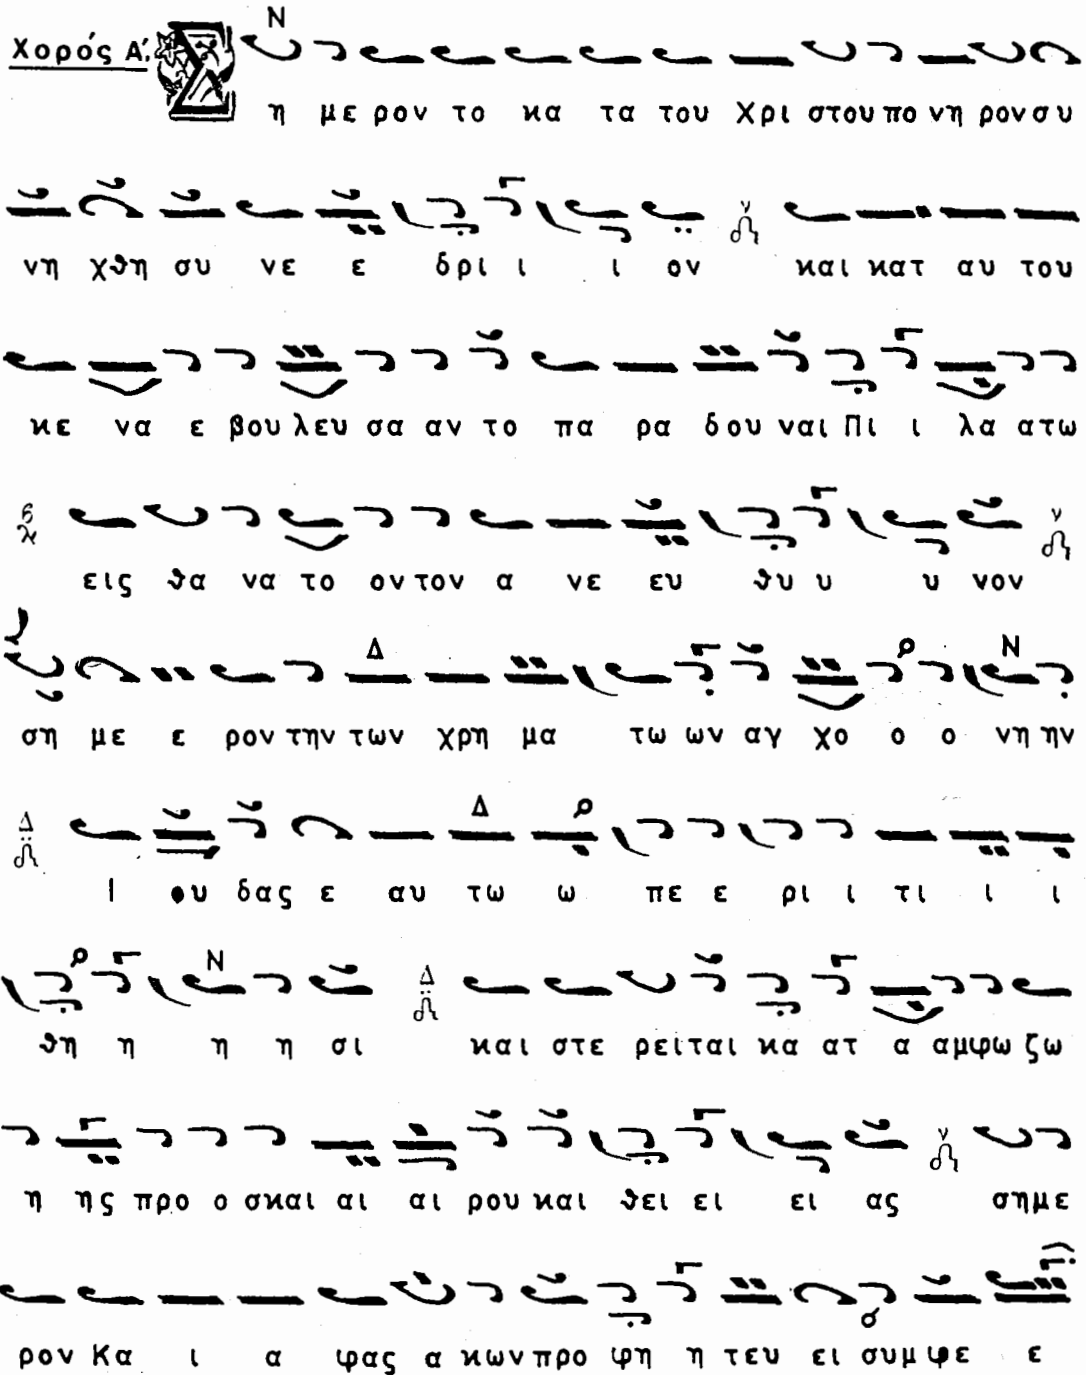 Ν
Χορός Α΄. Σ η με ρον το κα τα του Χρι στου πο νη ρον συ
νη χθη συ νε ε δρι ι ι ον και κατ αυ του
κε να ε βου λευ σα αν το πα ρα δου ναι Πι ι λα ατω
εις θα να το ον τον α νε ευ θυ υ υ νον
Δ Ν
ση με ε ρον την των χρη μα τω ων αγ χο ο ο νη ην
Δ
Ι ου δας ε αυ τω ω πε ε ρι ι τι ι ι
Ν
θη η η η σι και στε ρείται κα ατ α αμφω ζω
η ης προ ο σκαι αι αι ρου και θει ει ει ας σημε
ρον Κα ι α φας α κων προ φη η τευ ει συμ φε ε